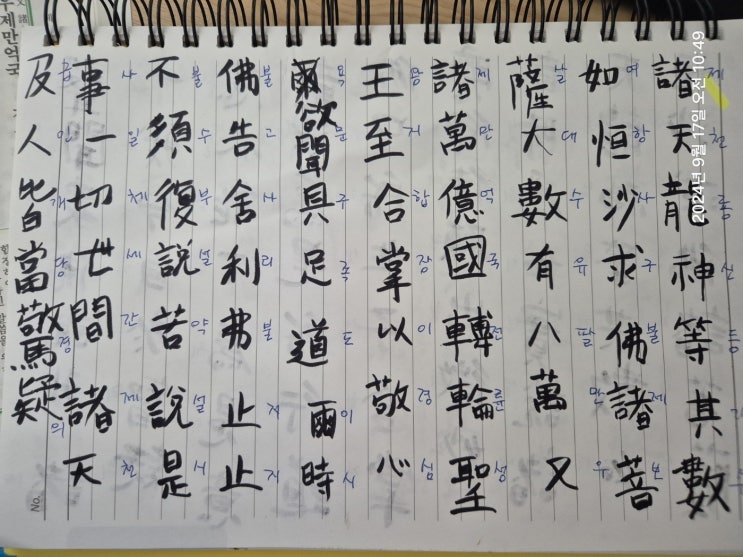 2024년 9월 17일 오전 10:49
諸天龍神等其數
제천룡신등기
如恒沙求佛諸菩
여항사구불제보
薩大數有八萬又
살대수유팔만우
諸萬億國轉輪聖
제만억국전륜성
王至合掌以敬心
지합장이경심
爾欲聞具足道爾時
욕문구족도이시
佛告舍利弗止止
불고사리불지지
不須復說苦說是
불수부설약설시
事一切世間諸天
사일체세간제천
及人皆當驚疑
급인개당경의
제만억국
No.